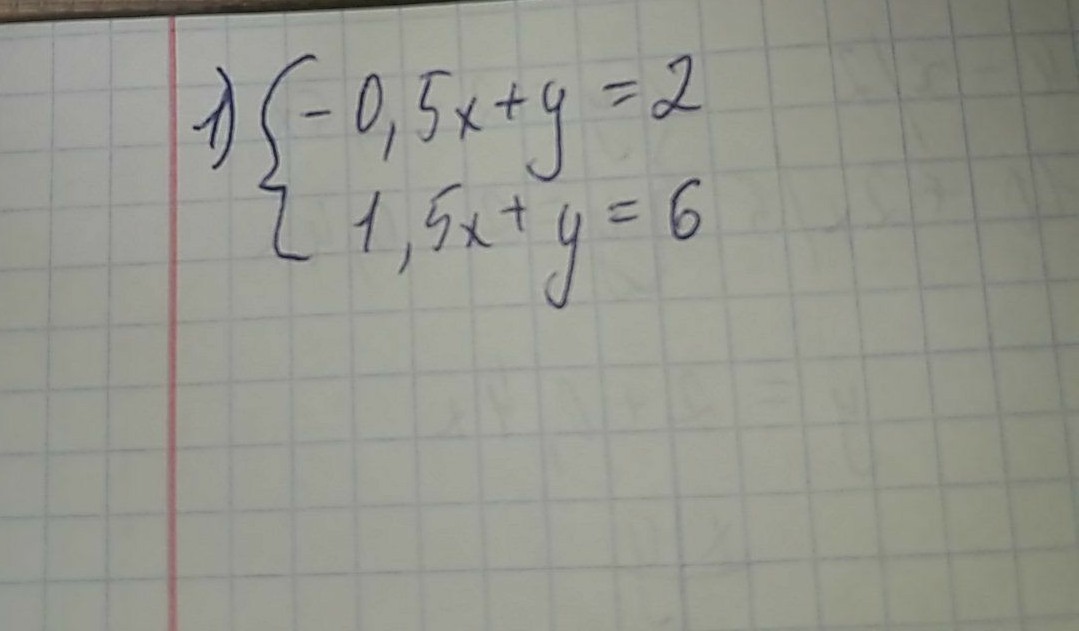 1) { - 0,5x + y = 2
1,5x + y = 6